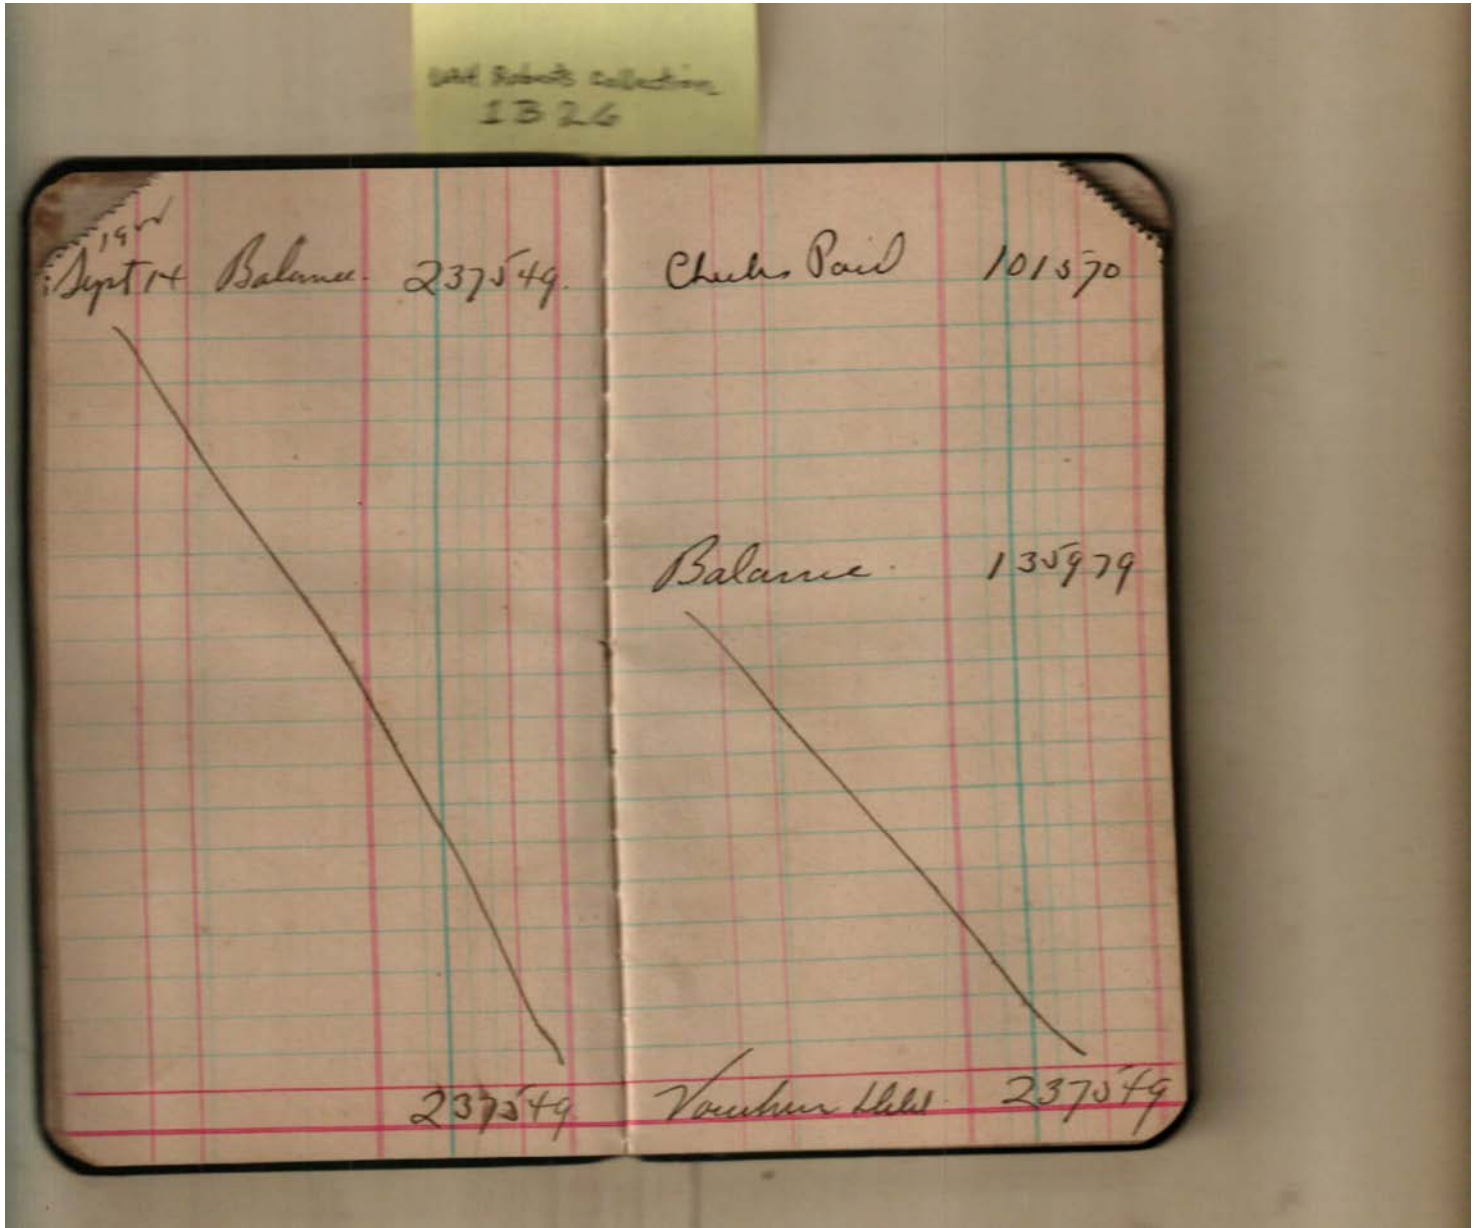 UAH Roberts Collection
1B26
Sept 14 Balance. 237549.
237549
Checks Paid 101570
Balance. 135979
Vouchers 237549